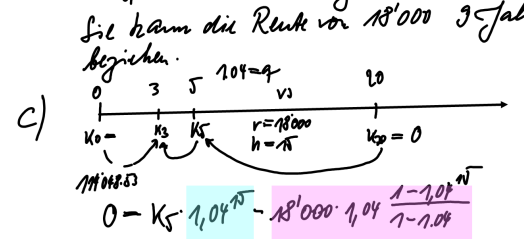 Sie kann die Rente von 18'000 9 Jah
beziehen.
1.04=q
0 3 5 VS 20
c)
K0= K3 K5 r=18000 K20=0
n=15
0 = K5 · 1,04^15 - 18'000 · 1,04 (1-1,04^15)/(1-1.04)